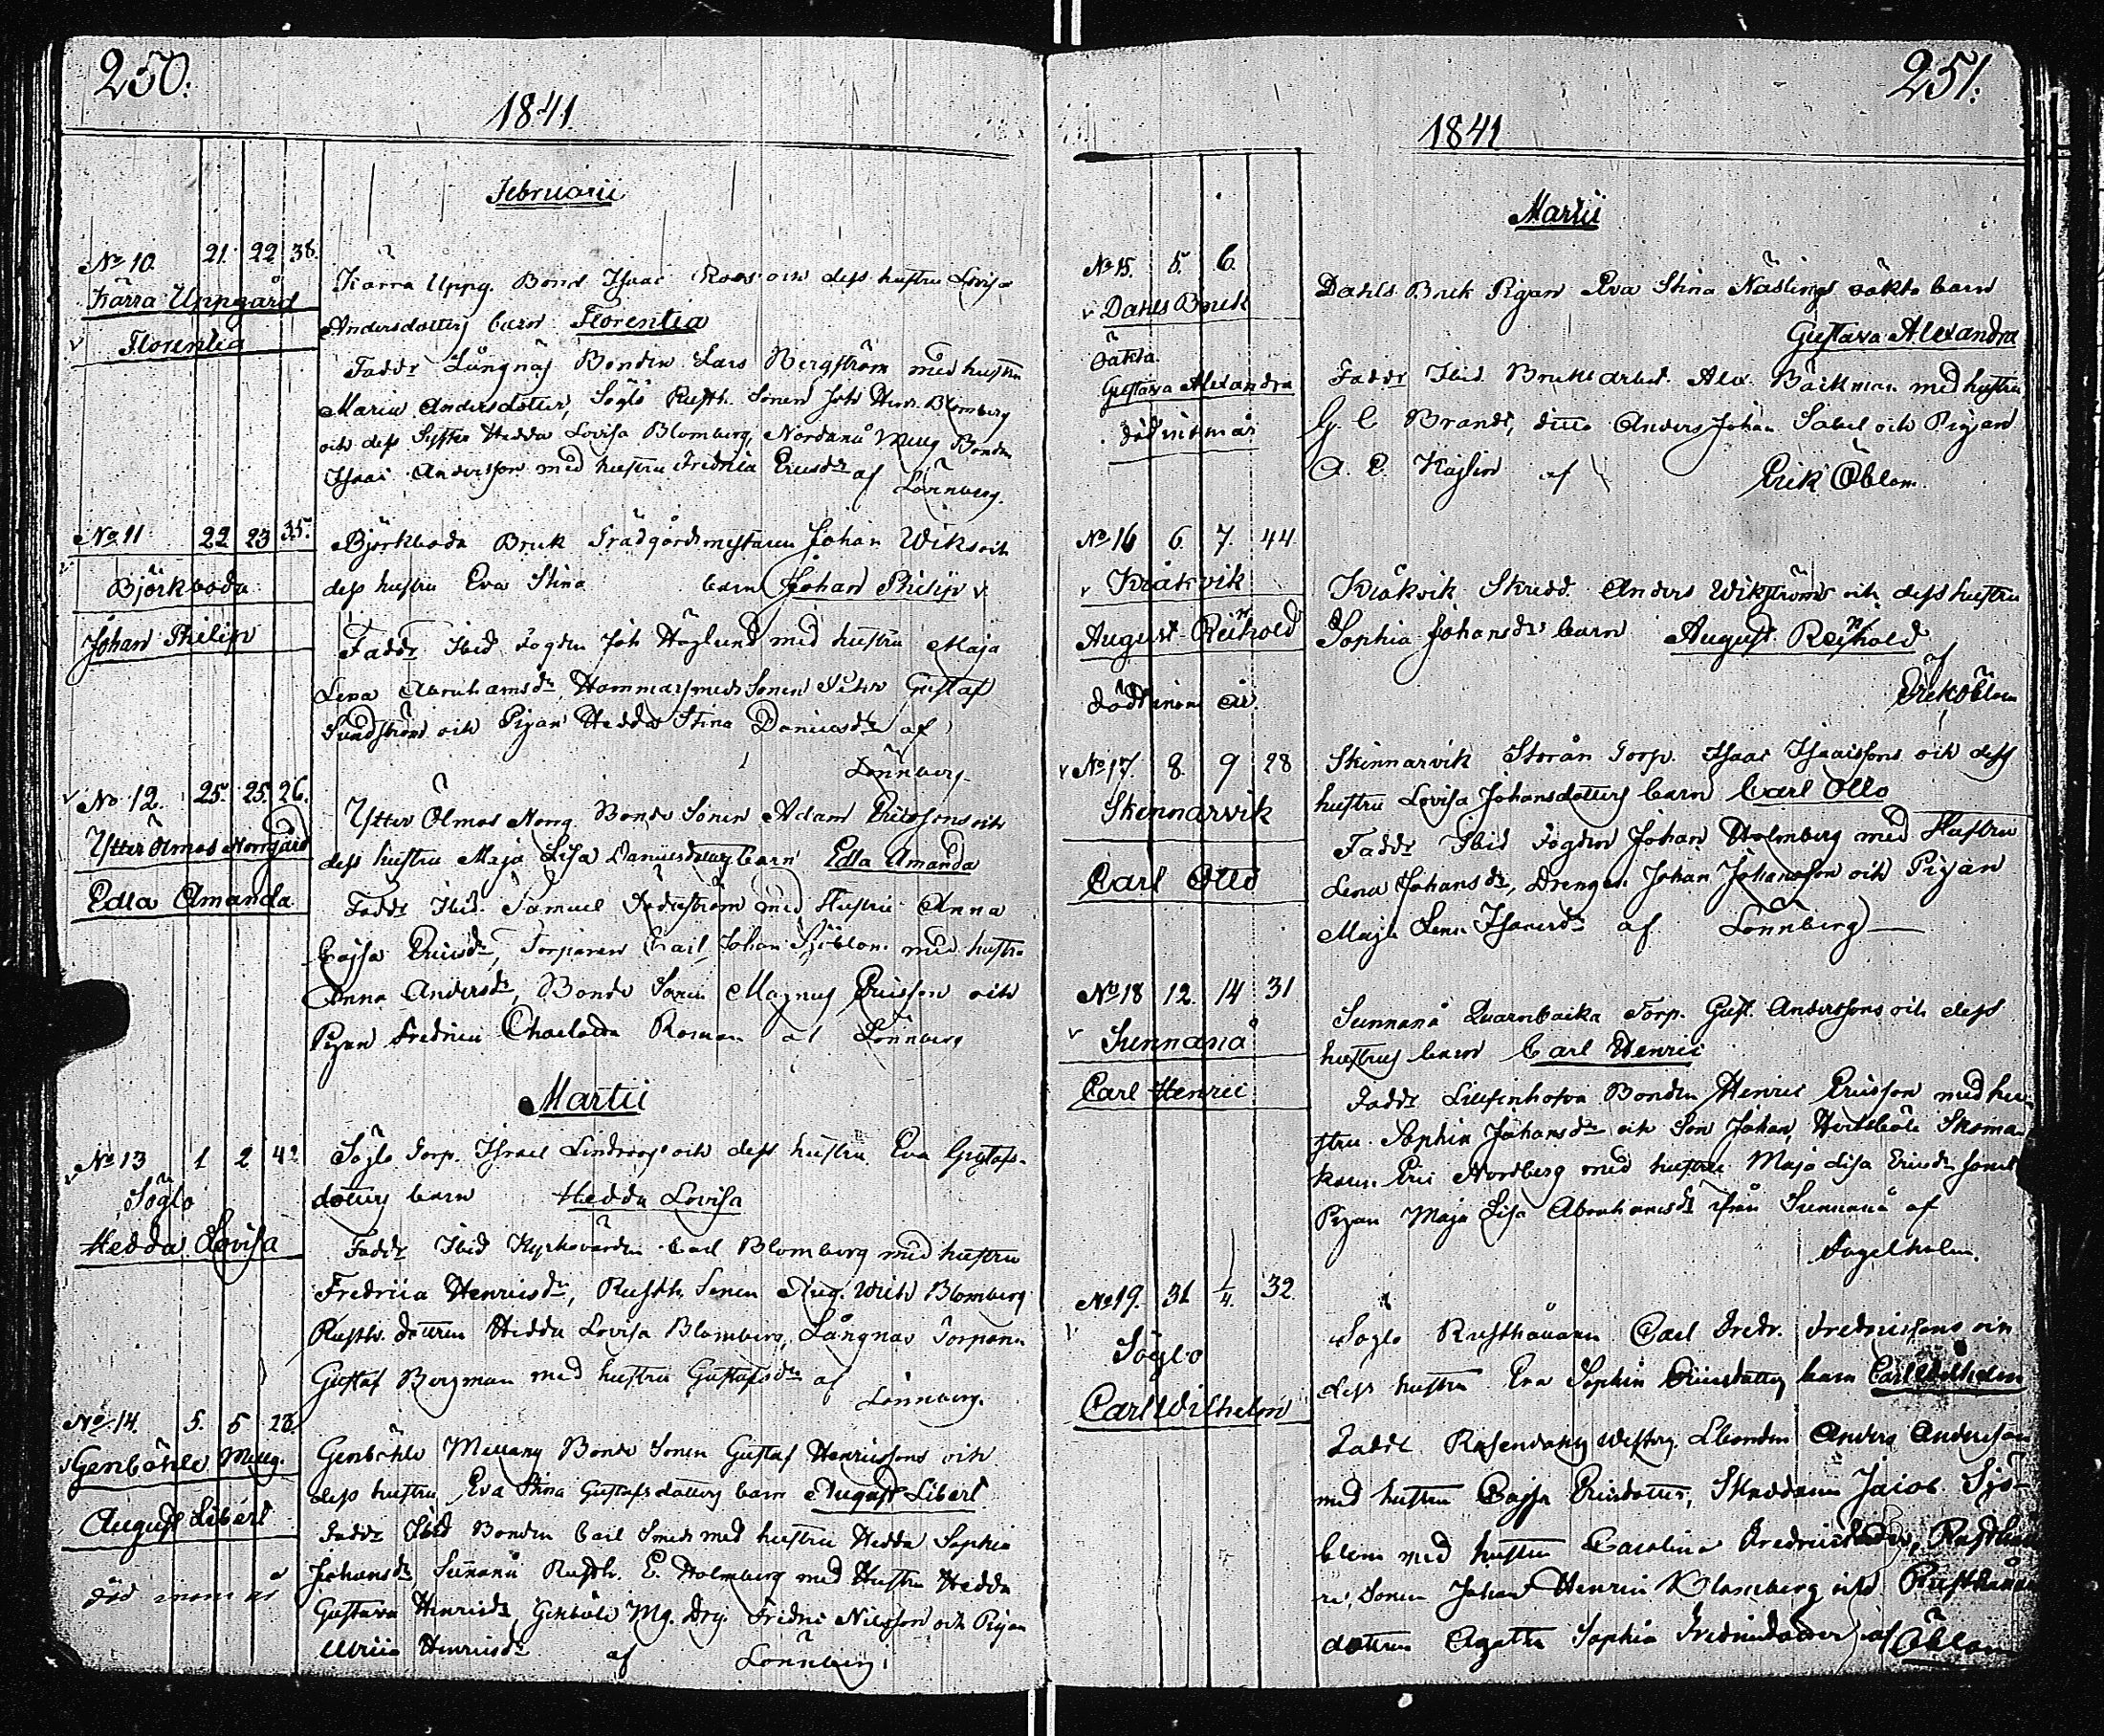 250.
1841.
Februarii
No 10. 21. 22. 38.
Kärra Uppgård
Florentia
Kärra Uppg. Bond. Isaac Roos och dess hustru Lovisa
Andersdotters barn Florentia
Faddr Långnäs Bonden Lars Bergström med hustru
Maria Andersdotter, Söglö Rusth. Sonen Joh Henr. Blomberg
och dess Syster Hedda Lovisa Blomberg, Nordanå Mellg Bonden
Isaac Andersson med hustru Fredrica Ericsdr af
Lönnberg.
No 11 22 23 35.
Björkboda
Johan Philip
Björkboda Bruk Trädgårdsmästaren Johan Wiks och
dess hustru Eva Stina barn Johan Philip
Faddr Ibid Fogden Joh Höglund med hustru Maja
Lena Abrahamsdr, Hammarsmeds Sonen Gustaf
Sundström och Pigan Hedda Stina Danielsdr af
Lönnberg.
No 12. 25. 25. 26.
Ytter Ölmos Norrgård
Edla Amanda
Ytter Ölmos Norrg. Bonde Sonen Adam Ericssons och
dess hustru Maja Lisa Danielsdotters barn Edla Amanda
Faddr Ibid. Samuel Söderström med Hustru Anna
Cajsa Ericsdr, Torparen Carl Johan Sjöblom med hustru
Anna Andersdr, Bonde Sonen Magnus Ericsson och
Pigan Fredrica Charlotta Roman af Lönnberg
Martii
No 13 1 2 42
Söglö
Hedda Lovisa
Söglö Torp. Israel Lindroos och dess hustru Eva Gustafs-
dotters barn Hedda Lovisa
Faddr Ibid Kyrkovärden Carl Blomberg med hustru
Fredrica Henricsdr, Rusth. Sonen Aug. Wilh Blomberg
Rusth. dottren Hedda Lovisa Blomberg, Långnäs Torparen
Gustaf Bergman med hustru Gustafsdr af
Lönnberg.
No 14. 5. 5 28.
Genböhle Mellg.
August Libert
död inom år
Genböhle Mellang Bonde Sonen Gustaf Henricssons och
dess hustru Eva Stina Gustafsdotters barn August Libert
Faddr Ibid Bonden Carl Smeds med hustru Hedda Sophia
Johansdr Sunnanå Rusth. E. Holmberg med Hustru Hedda
Gustava Henricsdr, Genböle Mg. Drg. Fredric Nilsson och Pigan
Ulrica Henricsdr af Lönnberg.
251.
1841
Martii
No 15. 5. 6.
Dahls Bruk
oäkta
Gustava Alexandra
död inom år
Dahls Bruk Pigan Eva Stina Näslings oäkta barn
Gustava Alexandra
Faddr Ibid. Bruks arbet. Alex. Bäckman med hustru
G. C Brandt, ditto Anders Johan Sabel och Pigan
A. C. Kajlin af Erik Öblom.
No 16 6. 7. 44
Kråkvik
August Reinhold
död inom år.
Kråkvik Skredd. Anders Wikströms och dess hustru
Sophia Johansdr barn August Reinhold
af
Erik Öblom
No 17. 8. 9 28
Skinnarvik
Carl Otto
Skinnarvik Storån Torp. Isaac Isaacssons och dess
hustru Lovisa Johansdotters barn Carl Otto
Faddr Ibid Fogden Johan Holmberg med Hustru
Lena Johansdr, Drengen Johan Johansson och Pigan
Maja Lena Isacsdr af Lönnberg
No 18 12. 14 31
Sunnanå
Carl Henric
Sunnanå Quarnbacka Torp. Gust. Anderssons och dess
hustrus barn Carl Henric
Faddr Bonden Henric Ericsson med hu-
stru Sophia Johansdr och Son Johan, Skoma-
karn Eric Nordberg med hustru Maja Lisa Ericsdr samt
Pigan Maja Lisa Abrahamsdr ifrån Sunnanå af
Fagelholm.
No 19. 31 1/4. 32.
Söglö
Carl Wilhelm
Söglö Rusthållaren Carl Fredr. Fredricssons och
dess hustru Eva Sophia Ericsdotters barn Carl Wilhelm
Faddr Rosendahl Westerg. Bonden Anders Andersson
med hustru Cajsa Ericsdotter, Skeddaren Jacob Sjö-
blom med hustru Carolina Fredricsdotter, Rusthålla-
re, Sonen Johan Henric Blomberg och Rusthållare
dottren Agatha Sophia Fredricsdotter af Öblom